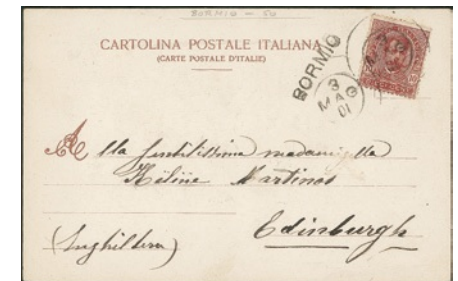 BORMIO - SO
CARTOLINA POSTALE ITALIANA
(CARTE POSTALE D'ITALIE)
BORMIO
3
MAG
01
Alla gentilissima madamigella
Hélène Martinos
Edinburgh
(Inghilterra)